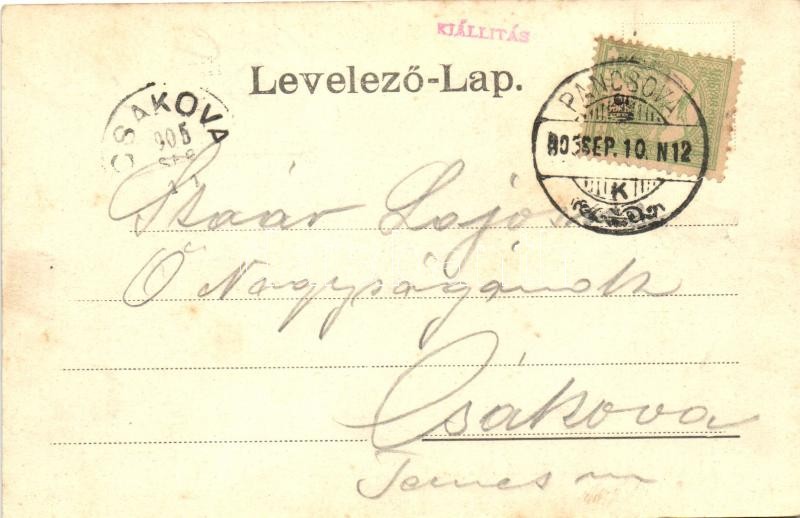 KIÁLLITÁS
Levelező-Lap.
CSAKOVA
905
SEP
PANCSOVA
905 SEP. 10. N12
K
Staár Lajos
Ő Nagyságának
Csákova
Temes m